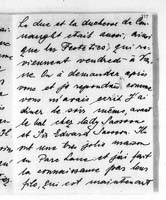 Le duc et la duchesse de Con-
naught était aussi, ainsi
que les Festetics, qui re-
viennent vendredi. à
a demandé après
vous et je répondrai comme
vous m'aviez écrit. J'ai
diner de soir même avant
le bal chez lady Sassoon
et Sir Edward Sassoon. Ils
ont une très jolie maison
en Park Lane et j'ai fait
la connaissance par leur
fils, qui est maintenant